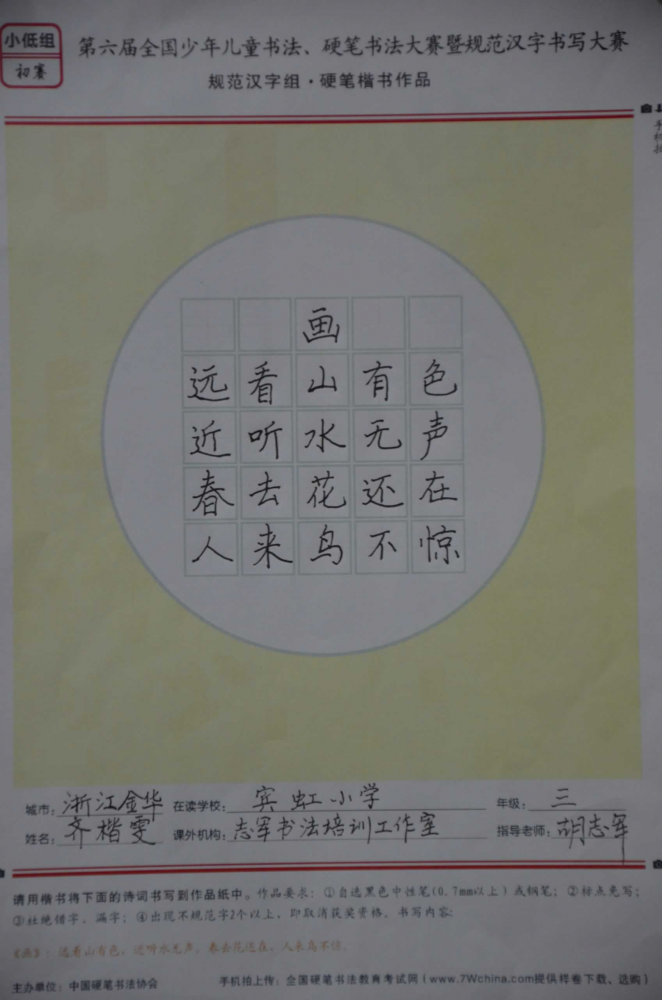 小低组
初赛
第六届全国少年儿童书法、硬笔书法大赛暨规范汉字书写大赛
规范汉字组·硬笔楷书作品
手机拍
画
远看山有色
近听水无声
春去花还在
人来鸟不惊
城市：浙江金华 在读学校：宾虹小学 年级：三
姓名：齐楷雯 课外机构：志军书法培训工作室 指导老师：胡志军
请用楷书将下面的诗词书写到作品纸中。作品要求：①自选黑色中性笔(0.7mm以上)或钢笔；②标点免写；
③杜绝错字、漏字；④出现不规范字2个以上，即取消获奖资格。书写内容：
《画》：远看山有色，近听水无声。春去花还在，人来鸟不惊。
主办单位：中国硬笔书法协会 手机拍上传：全国硬笔书法教育考试网（www.7Wchina.com提供样卷下载、选购）